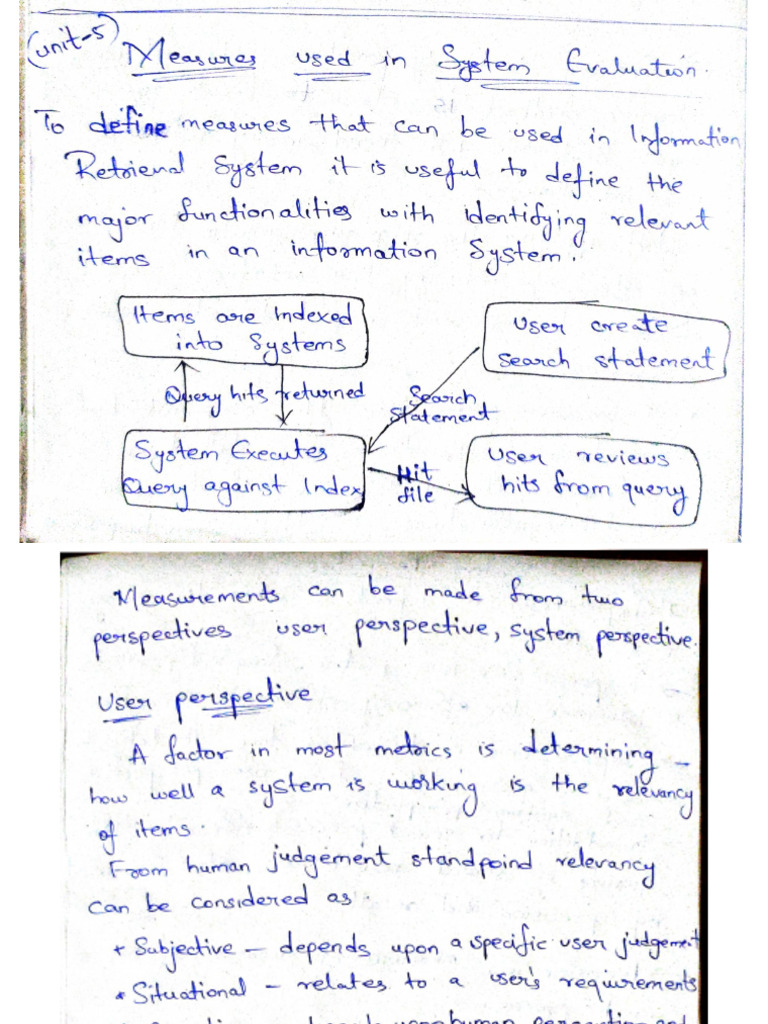 (unit-5)
Measures used in System Evaluation.
To define measures that can be used in Information
Retrieval System it is useful to define the
major functionalities with identifying relevant
items in an information System.
Items are Indexed
into Systems
User create
search statement
Query hits returned
Search
statement
System Executes
Query against Index
Hit
file
User reviews
hits from query
Measurements can be made from two
perspectives user perspective, system perspective.
User perspective
A factor in most metrics is determining -
how well a system is working is the relevancy
of items.
From human judgement standpoind relevancy
can be considered as
+ Subjective - depends upon a specific user judgement
* Situational - relates to a user's requirements